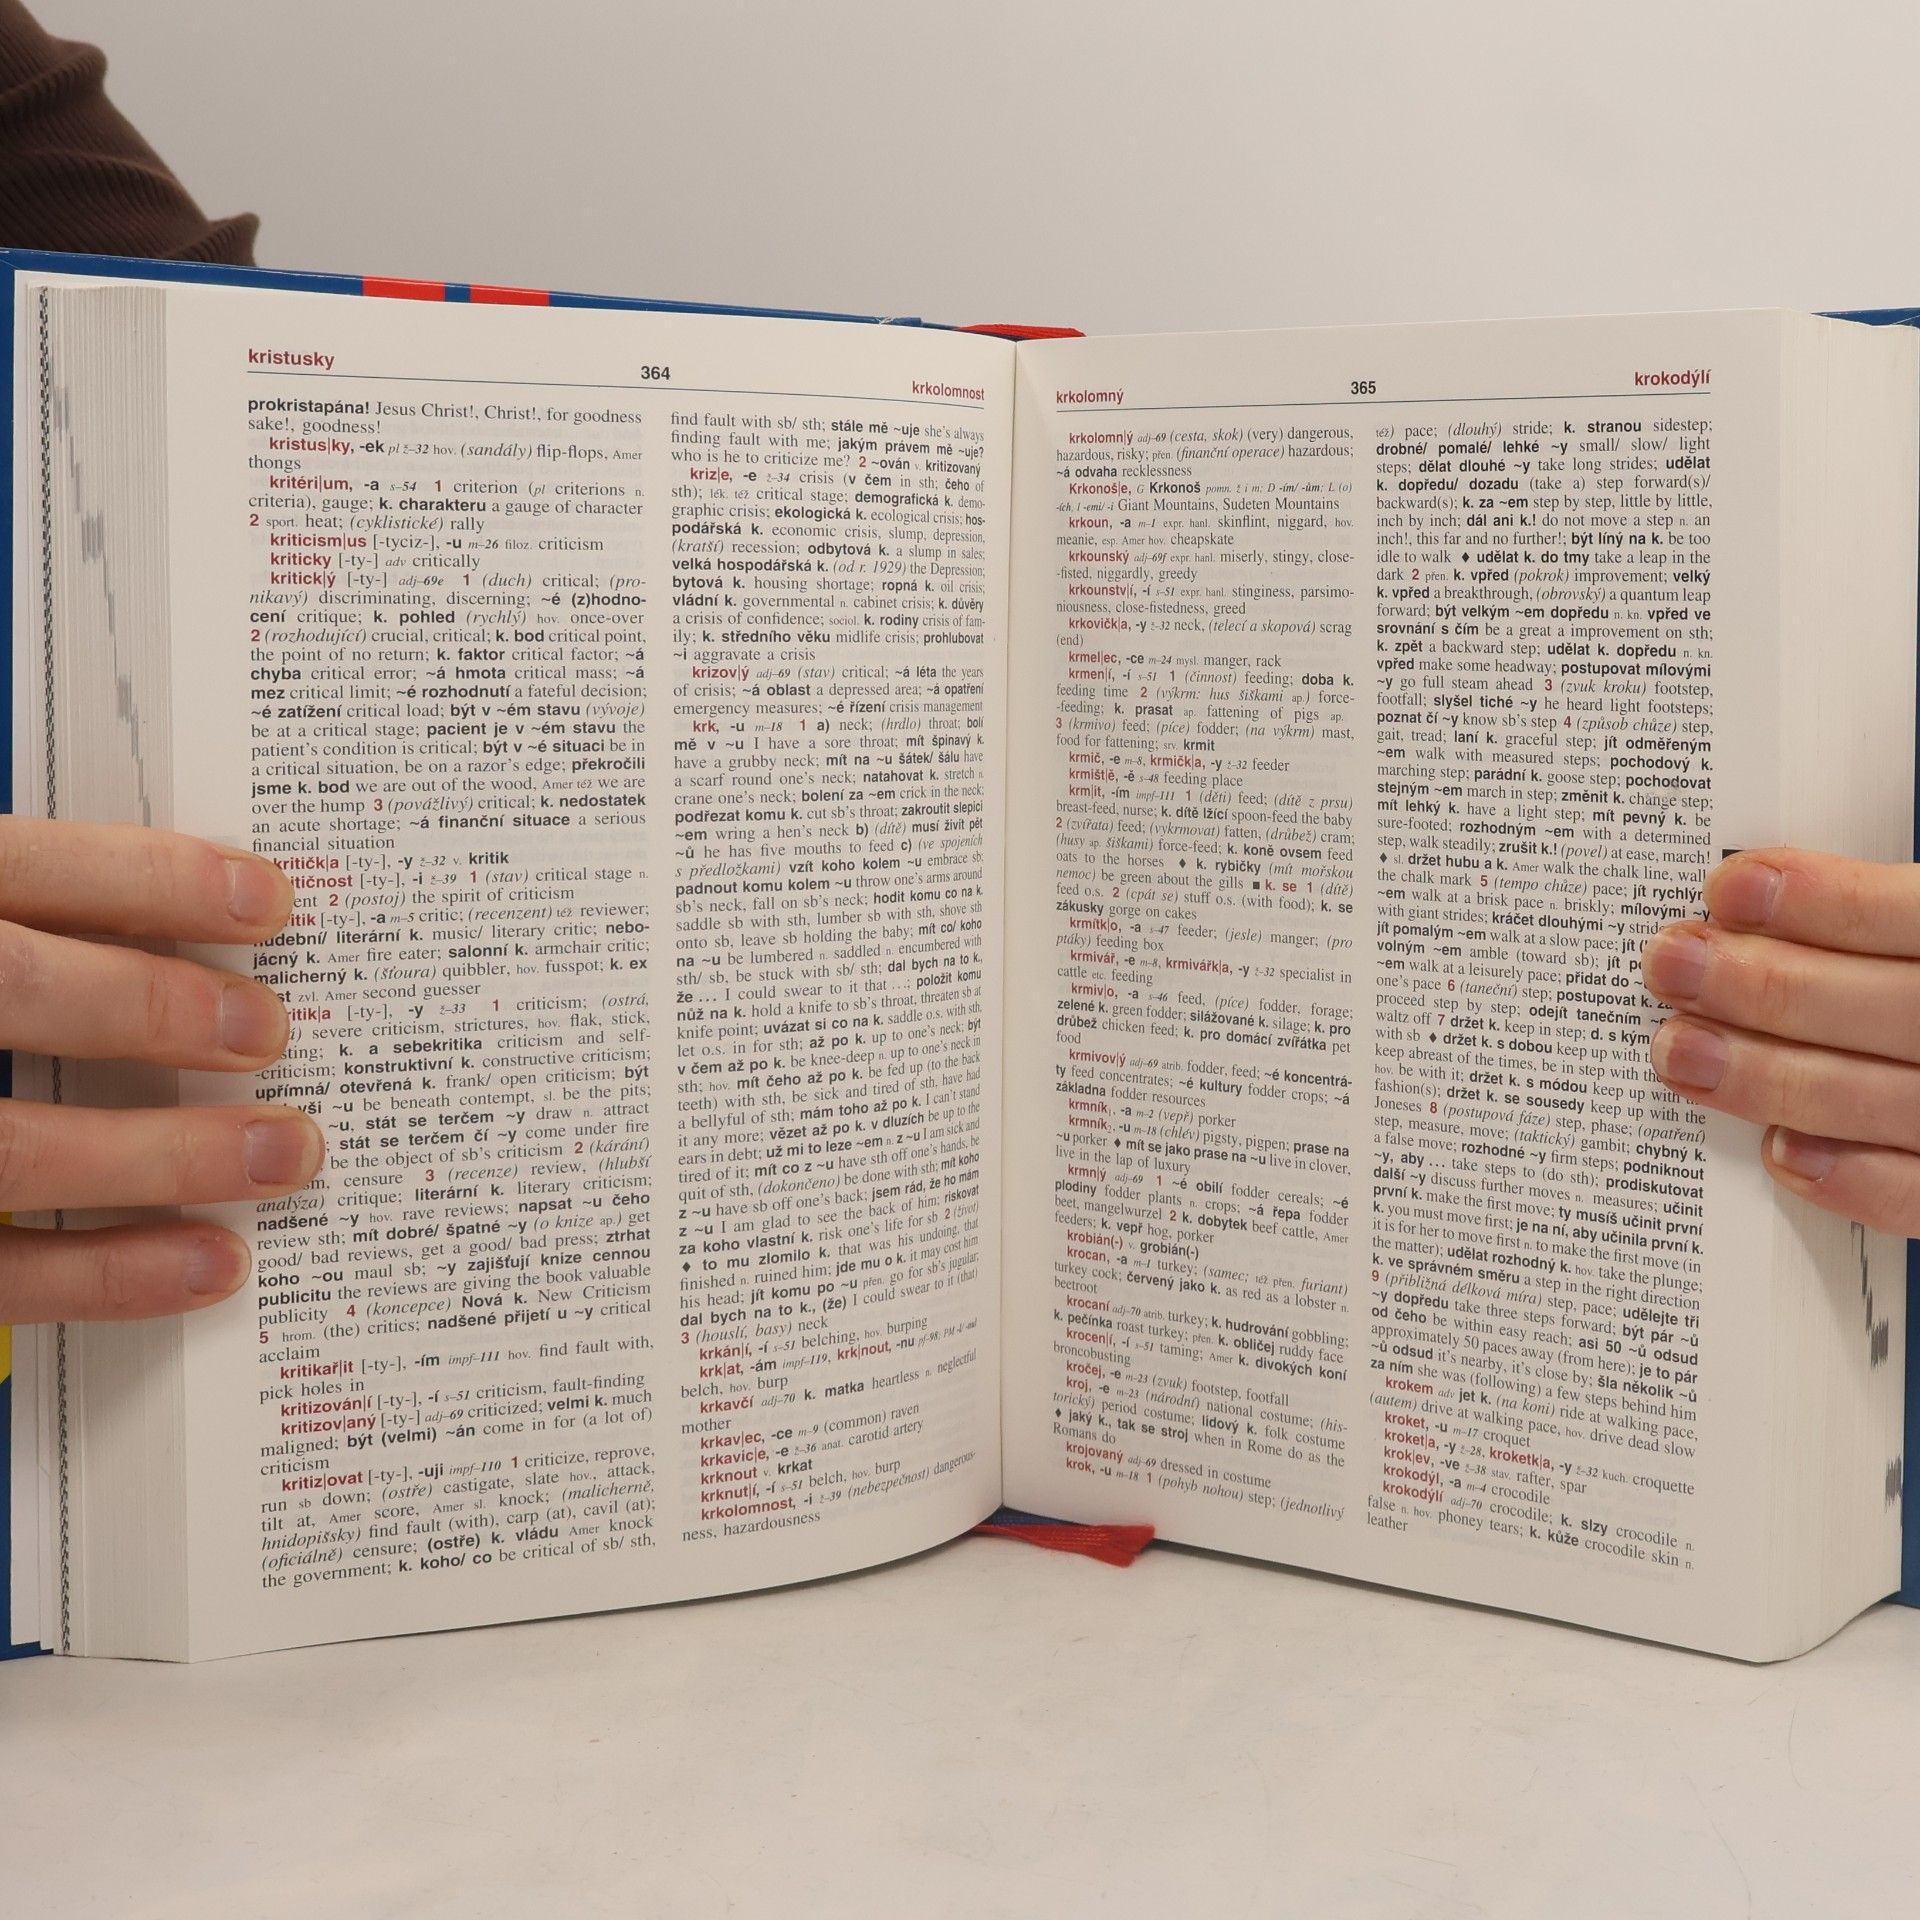 kristusky
364
krkolomnost
prokristapána! Jesus Christ!, Christ!, for goodness
sake!, goodness!
kristus|ky, -ek pl ž–32 hov. (sandály) flip-flops, Amer
thongs
kritéri|um, -a s–54 1 criterion (pl criterions n.
criteria), gauge; k. charakteru a gauge of character
2 sport. heat; (cyklistické) rally
kriticism|us [-tyciz-], -u m–26 filoz. criticism
kriticky [-ty-] adv critically
kritick|ý [-ty-] adj–69e 1 (duch) critical; (pro-
nikavý) discriminating, discerning; ~é (z)hodno-
cení critique; k. pohled (rychlý) hov. once-over
2 (rozhodující) crucial, critical; k. bod critical point,
the point of no return; k. faktor critical factor; ~á
chyba critical error; ~á hmota critical mass; ~á
mez critical limit; ~é rozhodnutí a fateful decision;
~é zatížení critical load; být v ~ém stavu (vývoje)
be at a critical stage; pacient je v ~ém stavu the
patient's condition is critical; být v ~é situaci be in
a critical situation, be on a razor's edge; překročili
jsme k. bod we are out of the wood, Amer též we are
over the hump 3 (povážlivý) critical; k. nedostatek
an acute shortage; ~á finanční situace a serious
financial situation
kritičk|a [-ty-], -y ž–32 v. kritik
itičnost [-ty-], -i ž–39 1 (stav) critical stage n.
ent 2 (postoj) the spirit of criticism
itik [-ty-], -a m–5 critic; (recenzent) též reviewer;
hudební/ literární k. music/ literary critic; nebo-
jácný k. Amer fire eater; salonní k. armchair critic;
malicherný k. (šťoura) quibbler, hov. fusspot; k. ex
st zvl. Amer second guesser
ritik|a [-ty-], -y ž–33 1 criticism; (ostrá,
severe criticism, strictures, hov. flak, stick,
sting; k. a sebekritika criticism and self-
-criticism; konstruktivní k. constructive criticism;
upřímná/ otevřená k. frank/ open criticism; být
vši ~u be beneath contempt, sl. be the pits;
~u, stát se terčem ~y draw n. attract
; stát se terčem čí ~y come under fire
be the object of sb's criticism 2 (kárání)
sm, censure 3 (recenze) review, (hlubší
analýza) critique; literární k. literary criticism;
nadšené ~y hov. rave reviews; napsat ~u čeho
review sth; mít dobré/ špatné ~y (o knize ap.) get
good/ bad reviews, get a good/ bad press; ztrhat
koho ~ou maul sb; ~y zajišťují knize cennou
publicitu the reviews are giving the book valuable
publicity 4 (koncepce) Nová k. New Criticism
5 hrom. (the) critics; nadšené přijetí u ~y critical
acclaim
kritikař|it [-ty-], -ím impf–111 hov. find fault with,
pick holes in
kritizován|í [-ty-], -í s–51 criticism, fault-finding
kritizov|aný [-ty-] adj–69 criticized; velmi k. much
maligned; být (velmi) ~án come in for (a lot of)
criticism
kritiz|ovat [-ty-], -uji impf–110 1 criticize, reprove,
run sb down; (ostře) castigate, slate hov., attack,
tilt at, Amer score, Amer sl. knock; (malicherně,
hnidopišsky) find fault (with), carp (at), cavil (at);
(oficiálně) censure; (ostře) k. vládu Amer knock
the government; k. koho/ co be critical of sb/ sth,
find fault with sb/ sth; stále mě ~uje she's always
finding fault with me; jakým právem mě ~uje?
who is he to criticize me? 2 ~ován v. kritizovaný
kriz|e, -e ž–34 crisis (v čem in sth; čeho of
sth); lék. též critical stage; demografická k. demo-
graphic crisis; ekologická k. ecological crisis; hos-
podářská k. economic crisis, slump, depression,
(kratší) recession; odbytová k. a slump in sales;
velká hospodářská k. (od r. 1929) the Depression;
bytová k. housing shortage; ropná k. oil crisis;
vládní k. governmental n. cabinet crisis; k. důvěry
a crisis of confidence; sociol. k. rodiny crisis of fam-
ily; k. středního věku midlife crisis; prohlubovat
~i aggravate a crisis
krizov|ý adj–69 (stav) critical; ~á léta the years
of crisis; ~á oblast a depressed area; ~á opatření
emergency measures; ~é řízení crisis management
krk, -u m–18 1 a) neck; (hrdlo) throat; bolí
mě v ~u I have a sore throat; mít špinavý k.
have a grubby neck; mít na ~u šátek/ šálu have
a scarf round one's neck; natahovat k. stretch n.
crane one's neck; bolení za ~em crick in the neck;
podřezat komu k. cut sb's throat; zakroutit slepici
~em wring a hen's neck b) (dítě) musí živit pět
~ů he has five mouths to feed c) (ve spojeních
s předložkami) vzít koho kolem ~u embrace sb;
padnout komu kolem ~u throw one's arms around
sb's neck, fall on sb's neck; hodit komu co na k.
saddle sb with sth, lumber sb with sth, shove sth
onto sb, leave sb holding the baby; mít co/ koho
na ~u be lumbered n. saddled n. encumbered with
sth/ sb, be stuck with sb/ sth; dal bych na to k.,
že … I could swear to it that …; položit komu
nůž na k. hold a knife to sb's throat, threaten sb at
knife point; uvázat si co na k. saddle o.s. with sth,
let o.s. in for sth; až po k. up to one's neck; být
v čem až po k. be knee-deep n. up to one's neck in
sth; hov. mít čeho až po k. be fed up (to the back
teeth) with sth, be sick and tired of sth, have had
a bellyful of sth; mám toho až po k. I can't stand
it any more; vězet až po k. v dluzích be up to the
ears in debt; už mi to leze ~em n. z ~u I am sick and
tired of it; mít co z ~u have sth off one's hands, be
quit of sth, (dokončeno) be done with sth; mít koho
z ~u have sb off one's back; jsem rád, že ho mám
z ~u I am glad to see the back of him; riskovat
za koho vlastní k. risk one's life for sb 2 (život)
♦ to mu zlomilo k. that was his undoing, that
finished n. ruined him; jde mu o k. it may cost him
his head; jít komu po ~u přen. go for sb's jugular;
dal bych na to k., (že) I could swear to it (that)
3 (houslí, basy) neck
krkán|í, -í s–51 belching, hov. burping
krk|at, -ám impf–119, krk|nout, -nu pf–98;
belch, hov. burp
krkavčí adj–70 k. matka heartless n. neglectful
mother
krkav|ec, -ce m–9 (common) raven
krkavic|e, -e ž–36 anat. carotid artery
krknout v. krkat
krknut|í, -í s–51 belch, hov. burp
krkolomnost, -i ž–39 (nebezpečnost) dangerous-
ness, hazardousness
krkolomný
365
krokodýlí
krkolomn|ý adj–69 (cesta, skok) (very) dangerous,
hazardous, risky; přen. (finanční operace) hazardous;
~á odvaha recklessness
Krkonoš|e, G Krkonoš pomn. ž i m; D -ím/ -ům; L (o)
-ích, I -emi/ -i Giant Mountains, Sudeten Mountains
krkoun, -a m–1 expr. hanl. skinflint, niggard, hov.
meanie, esp. Amer hov. cheapskate
krkounský adj–69f expr. hanl. miserly, stingy, close-
-fisted, niggardly, greedy
krkounstv|í, -í s–51 expr. hanl. stinginess, parsimo-
niousness, close-fistedness, greed
krkovičk|a, -y ž–32 neck, (telecí a skopová) scrag
(end)
krmel|ec, -ce m–24 mysl. manger, rack
krmen|í, -í s–51 1 (činnost) feeding; doba k.
feeding time 2 (výkrm: hus šiškami ap.) force-
-feeding; k. prasat ap. fattening of pigs ap.
3 (krmivo) feed; (píce) fodder; (na výkrm) mast,
food for fattening; srv. krmit
krmič, -e m–8, krmičk|a, -y ž–32 feeder
krmišt|ě, -ě s–48 feeding place
krm|it, -ím impf–111 1 (děti) feed; (dítě z prsu)
breast-feed, nurse; k. dítě lžící spoon-feed the baby
2 (zvířata) feed; (vykrmovat) fatten, (drůbež) cram;
(husy ap. šiškami) force-feed; k. koně ovsem feed
oats to the horses ♦ k. rybičky (mít mořskou
nemoc) be green about the gills ■ k. se 1 (dítě)
feed o.s. 2 (cpát se) stuff o.s. (with food); k. se
zákusky gorge on cakes
krmítk|o, -a s–47 feeder; (jesle) manger; (pro
ptáky) feeding box
krmivář, -e m–8, krmivářk|a, -y ž–32 specialist in
cattle etc. feeding
krmiv|o, -a s–46 feed, (píce) fodder, forage;
zelené k. green fodder; silážované k. silage; k. pro
drůbež chicken feed; k. pro domácí zvířátka pet
food
krmivov|ý adj–69 atrib. fodder, feed; ~é koncentrá-
ty feed concentrates; ~é kultury fodder crops; ~á
základna fodder resources
krmník₁, -a m–2 (vepř) porker
krmník₂, -u m–18 (chlév) pigsty, pigpen; prase na
~u porker ♦ mít se jako prase na ~u live in clover,
live in the lap of luxury
krmn|ý adj–69 1 ~é obilí fodder cereals; ~é
plodiny fodder plants n. crops; ~á řepa fodder
beet, mangelwurzel 2 k. dobytek beef cattle, Amer
feeders; k. vepř hog, porker
krobián(-) v. grobián(-)
krocan, -a m–1 turkey; (samec; též přen. furiant)
turkey cock; červený jako k. as red as a lobster n.
beetroot
krocaní adj–70 atrib. turkey; k. hudrování gobbling;
k. pečínka roast turkey; přen. k. obličej ruddy face
krocen|í, -í s–51 taming; Amer k. divokých koní
broncobusting
kročej, -e m–23 (zvuk) footstep, footfall
kroj, -e m–23 (národní) national costume; (his-
torický) period costume; lidový k. folk costume
♦ jaký k., tak se stroj when in Rome do as the
Romans do
krojovaný adj–69 dressed in costume
krok, -u m–18 1 (pohyb nohou) step; (jednotlivý
též) pace; (dlouhý) stride; k. stranou sidestep;
drobné/ pomalé/ lehké ~y small/ slow/ light
steps; dělat dlouhé ~y take long strides; udělat
k. dopředu/ dozadu (take a) step forward(s)/
backward(s); k. za ~em step by step, little by little,
inch by inch; dál ani k.! do not move a step n. an
inch!, this far and no further!; být líný na k. be too
idle to walk ♦ udělat k. do tmy take a leap in the
dark 2 přen. k. vpřed (pokrok) improvement; velký
k. vpřed a breakthrough, (obrovský) a quantum leap
forward; být velkým ~em dopředu n. kn. vpřed ve
srovnání s čím be a great a improvement on sth;
k. zpět a backward step; udělat k. dopředu n. kn.
vpřed make some headway; postupovat mílovými
~y go full steam ahead 3 (zvuk kroku) footstep,
footfall; slyšel tiché ~y he heard light footsteps;
poznat čí ~y know sb's step 4 (způsob chůze) step,
gait, tread; laní k. graceful step; jít odměřeným
~em walk with measured steps; pochodový k.
marching step; parádní k. goose step; pochodovat
stejným ~em march in step; změnit k. change step;
mít lehký k. have a light step; mít pevný k. be
sure-footed; rozhodným ~em with a determined
step, walk steadily; zrušit k.! (povel) at ease, march!
♦ sl. držet hubu a k. Amer walk the chalk line, walk
the chalk mark 5 (tempo chůze) pace; jít rychlým
~em walk at a brisk pace n. briskly; mílovými ~y
with giant strides; kráčet dlouhými ~y
jít pomalým ~em walk at a slow pace; jít
volným ~em amble (toward sb); jít
~em walk at a leisurely pace; přidat do
one's pace 6 (taneční) step; postupovat k.
proceed step by step; odejít tanečním
waltz off 7 držet k. keep in step; d. s kým
with sb ♦ držet k. s dobou keep up with
keep abreast of the times, be in step with the
hov. be with it; držet k. s módou keep up with
fashion(s); držet k. se sousedy keep up with the
Joneses 8 (postupová fáze) step, phase; (opatření)
step, measure, move; (taktický) gambit; chybný k.
a false move; rozhodné ~y firm steps; podniknout
~y, aby … take steps to (do sth); prodiskutovat
další ~y discuss further moves n. measures; učinit
první k. make the first move; ty musíš učinit první
k. you must move first; je na ní, aby učinila první k.
it is for her to move first n. to make the first move (in
the matter); udělat rozhodný k. hov. take the plunge;
k. ve správném směru a step in the right direction
9 (přibližná délková míra) step, pace; udělejte tři
~y dopředu take three steps forward; být pár ~ů
od čeho be within easy reach; asi 50 ~ů odsud
approximately 50 paces away (from here); je to pár
~ů odsud it's nearby, it's close by; šla několik ~ů
za ním she was (following) a few steps behind him
krokem adv jet k. (na koni) ride at walking pace,
(autem) drive at walking pace, hov. drive dead slow
kroket, -u m–17 croquet
kroket|a, -y ž–28, kroketk|a, -y ž–32 kuch. croquette
krok|ev, -ve ž–38 stav. rafter, spar
krokodýl, -a m–4 crocodile
krokodýlí adj–70 crocodile; k. slzy crocodile n.
false n. hov. phoney tears; k. kůže crocodile skin n.
leather